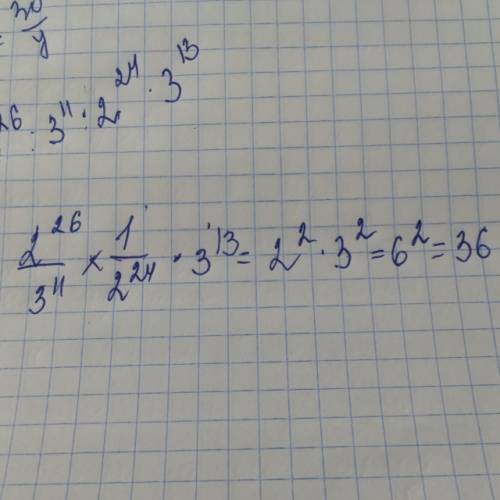 = 30/y
2^26 : 3^11 : 2^24 · 3^13
2^26/3^11 × 1/2^24 · 3^13 = 2^2 · 3^2 = 6^2 = 36